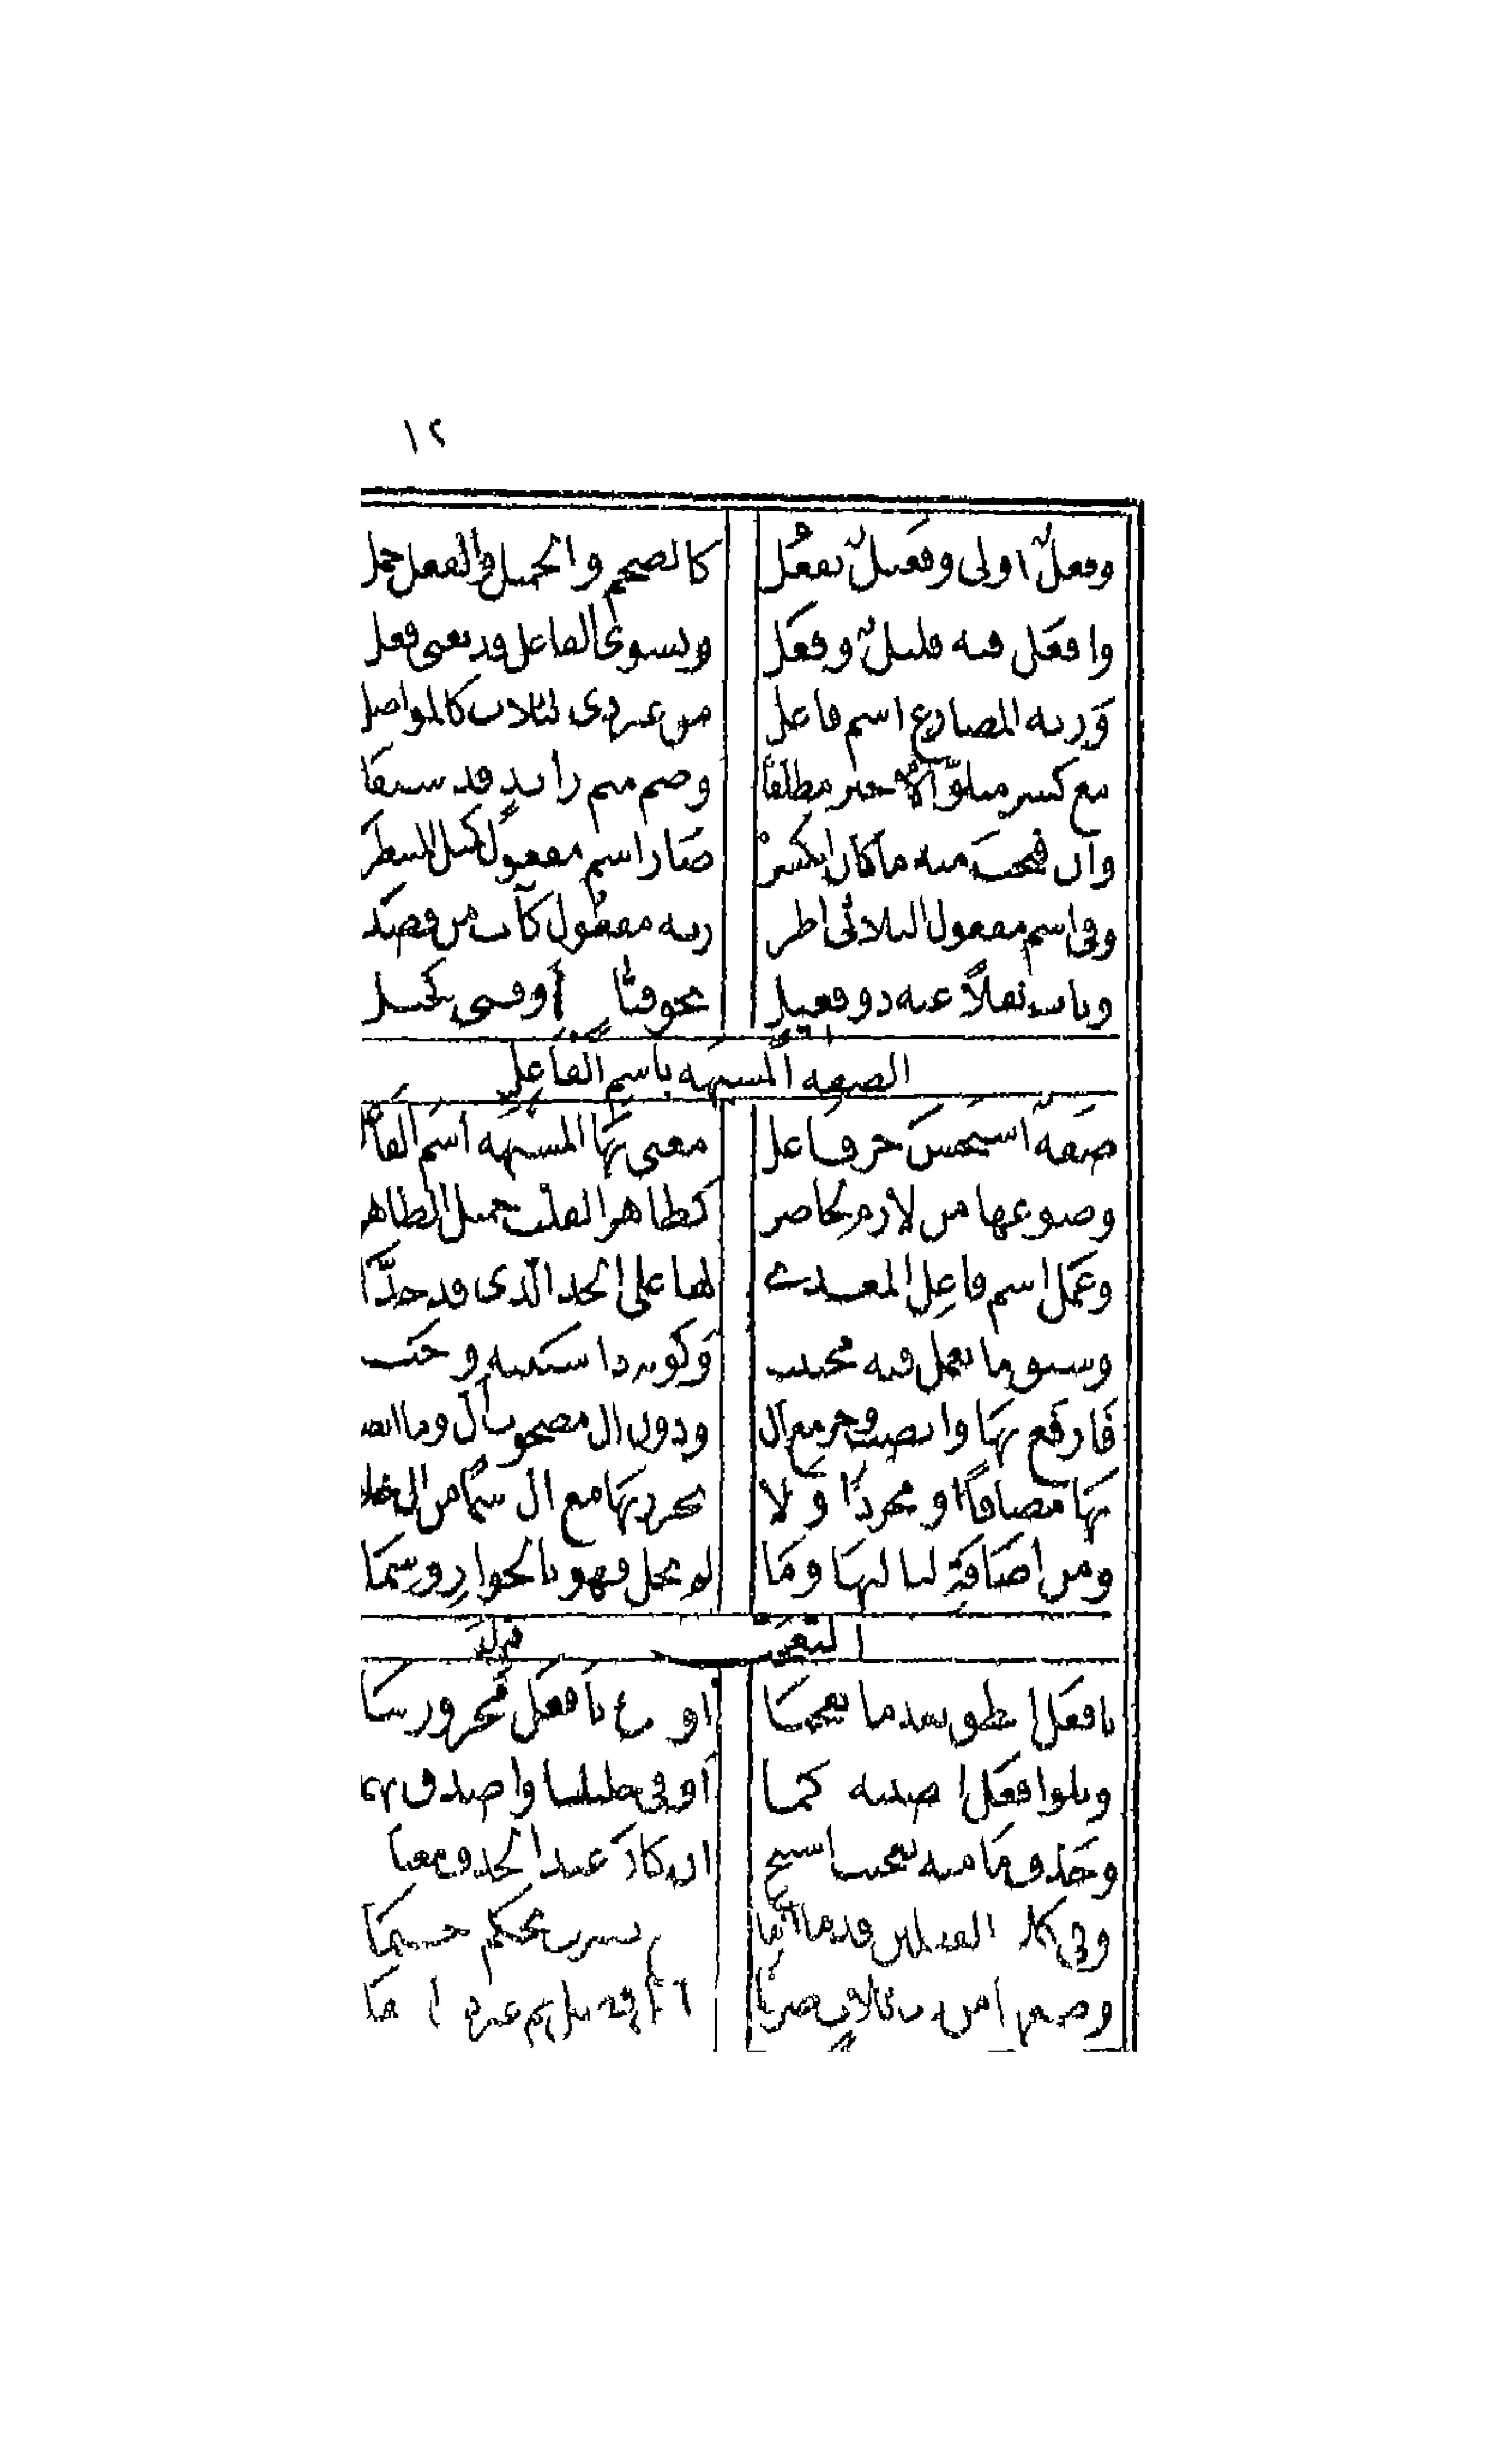 ١٢
وفعلٌ اولى وفعيلٌ بفعُل كالضخم والجميل والفعل جمل
وافعَل فيه قليلٌ وفعَل وبسوى الفاعل قد يغنى فعل
وَزنة المضارع اسم فاعل من غير ذي الثلاث كالمواصل
مع كسر متلوّ الأخير مطلقا وضم ميم زايدٍ قد سبقا
وان فتحتَ منه ما كان انكسرْ صَار اسم مفعولٍ كمثل المنتظَر
وفي اسم مفعول الثلاثي اطرد زنة مفعُول كآت من قصَد
وناب نقلاً عنه ذو فعيل نحو فتاٍ أو فتى كحيل
الصفة المشبهة باسم الفاعل
صفة استحسنَ جر فاعل معنى بهَا المشبهة اسم الفاعل
وصوغها من لازم لحاضر كطاهر القلب جميل الظاهر
وعَمَل اسم فاعِل المعدى لها على الحد الذي قد حدَّا
وسبق ما تعمل فيه مجتنب وَكونه ذا سببيه وجب
فَارفع بهَا وانصب وجر مع ال ودون ال مصحوب أل وما اتصل
بهَا مضافاً او مجردًا وَلا تجرر بهَا مع ال سمًا من ال خلا
ومن اضَافَةٍ لتاليهَا ومَا لم يخل فهو بالجواز وسِمَا
التعجب
بافعَل انطق بعد ما تعجبَا او جئ بأفعل قبل مجرور ببَا
وتلو افعَل انصبنه كما أوفى خليلينا واصدق بهما
وحَذف مَا منه تعجبت استبح ان كانَ عند الحذف معنا
وفي كلا الفعلين قدما لزما تصرف بحكم حتما
وصغهما من ذي ثلاث صرفا قابل فضل تم غير ذي انتفا